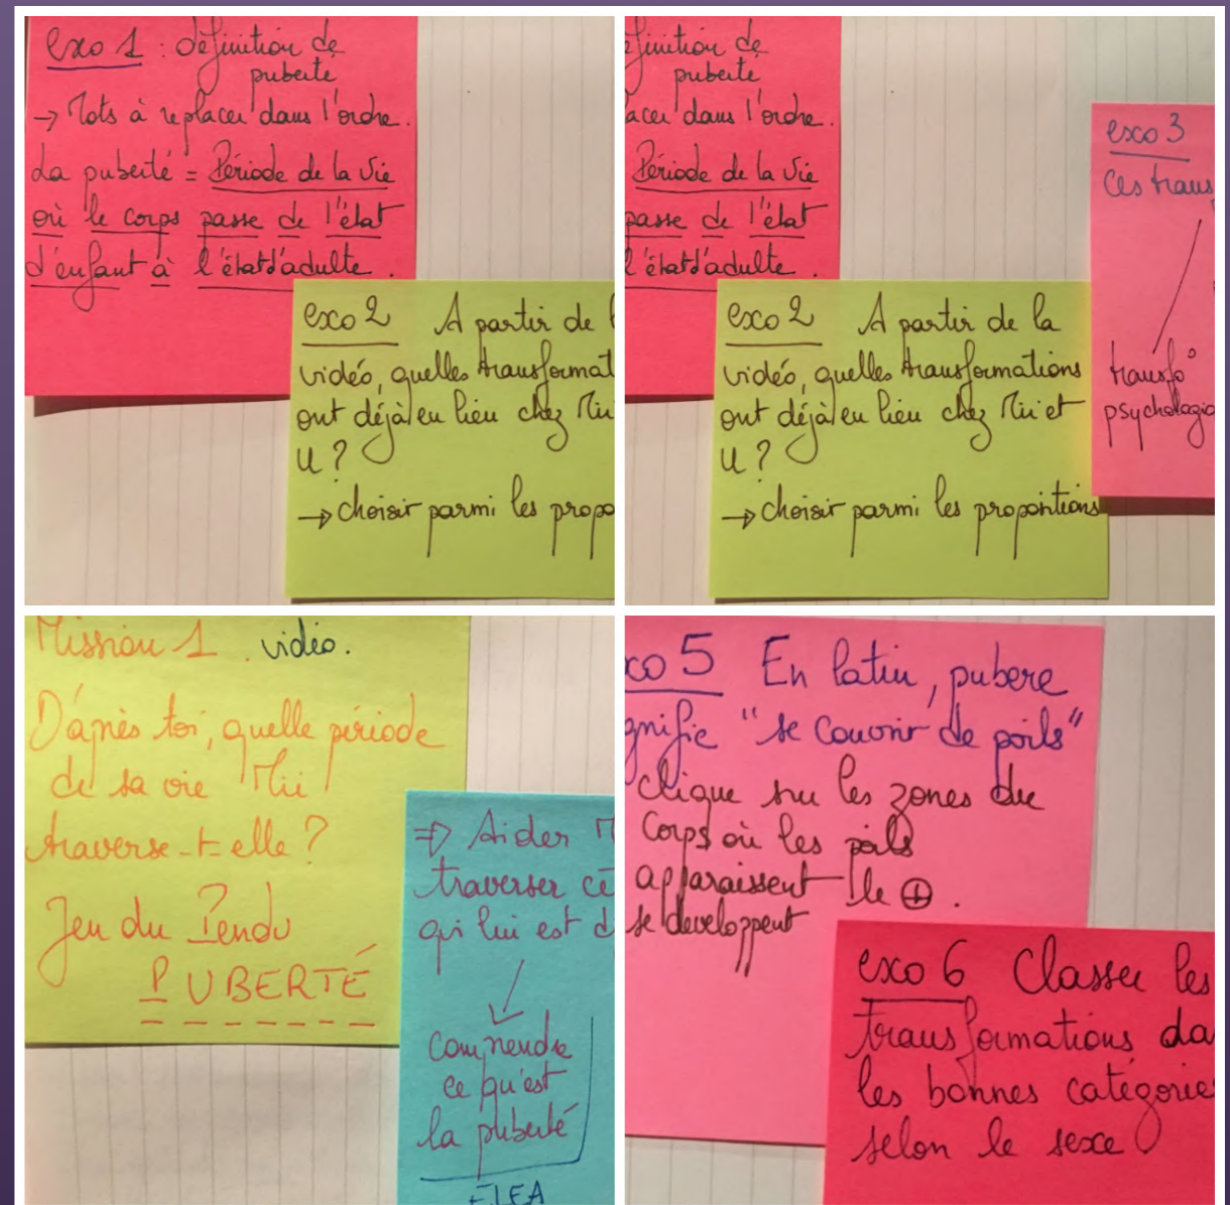 exo 1 : Définition de
puberté
→ Mots à replacer dans l'ordre.
La puberté = Période de la vie
où le corps passe de l'état
d'enfant à l'état d'adulte.
exo 2 A partir de
vidéo, quelles transformat
ont déjà eu lieu chez Mii
U ?
→ choisir parmi les propo
finition de
puberté
acer dans l'ordre.
Période de la vie
passe de l'état
l'état d'adulte.
exo 2 A partir de la
vidéo, quelles transformations
ont déjà eu lieu chez Mii et
U ?
→ choisir parmi les propositions
exo 3
Ces trans
transfo
psychologiq
Mission 1 . vidéo.
D'après toi, quelle période
de sa vie Mii
traverse-t-elle ?
Jeu du Pendu
PUBERTÉ
⇒ Aider M
traverser ce
qui lui est d
comprendre
ce qu'est
la puberté
ELEA
xo 5 En latin, pubere
gnifie "se couvrir de poils"
Clique sur les zones du
Corps où les poils
apparaissent le ⊕.
se developpent
exo 6 Classer les
transformations da
les bonnes catégorie
selon le sexe